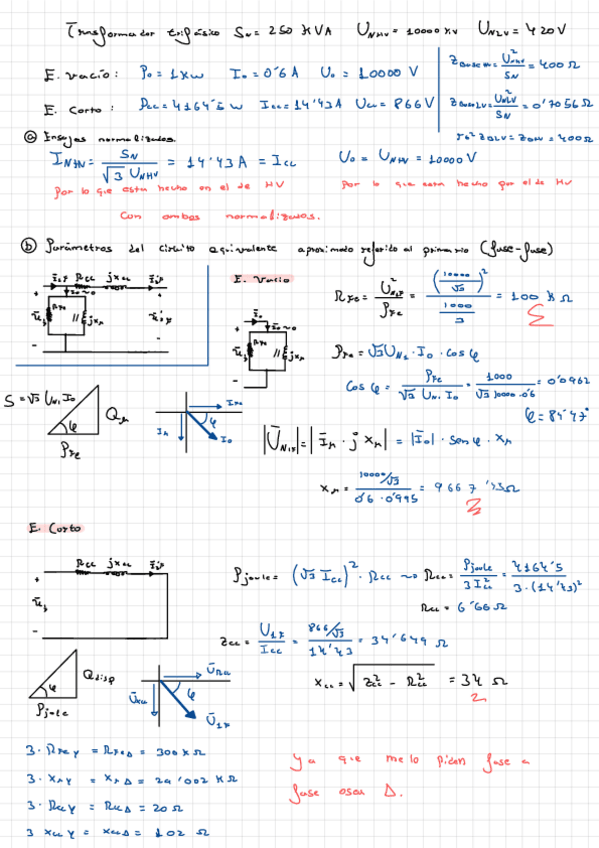 Transformador trifásico Sₙ = 250 KVA U_NHV = 10000 KV U_NLV = 420V
E. vacío: P₀ = 1kW I₀ = 0'6 A U₀ = 10000 V
E. Corto: Pcc = 4164'5 W Icc = 14'43 A Ucc = 866V
Z_BaseHV = U²_NHV / S_N = 400 Ω
Z_BaseLV = U²_NLV / S_N = 0'7056 Ω
rt² Z_BLV = Z_BHV = 400 Ω
ⓐ Ensayos normalizados.
I_NHV = S_N / √3 U_NHV = 14'43 A = Icc U₀ = U_NHV = 10000 V
Por lo que esta hecho en el de HV Por lo que esta hecho por el de HV
Con ambos normalizados.
ⓑ Parámetros del circuito equivalente aproximado referido al primario (fase-fase)
E. Vacío
R_Fe = U²_N1F / P_Fe = (10000/√3)² / (1000/3) = 100 kΩ
P_Fe = √3 U_N1 · I₀ · cos φ
Cos φ = P_Fe / √3 U_N1 I₀ = 1000 / √3 10000 · 0'6 = 0'0962
φ = 84'47°
S = √3 U_N1 I₀
|Ū_N1F| = |Ī_μ · j X_μ| = |Ī₀| · sen φ · X_μ
X_μ = (10000/√3) / (0'6 · 0'995) = 9667'13 Ω
E. Corto
P_joule = (√3 Icc)² · Rcc ⤳ Rcc = P_joule / 3 I²cc = 4164'5 / 3 · (14'43)²
Rcc = 6'66 Ω
Zcc = U_1F / Icc = (866/√3) / 14'43 = 34'649 Ω
Xcc = √(Z²cc − R²cc) = 34 Ω
3 · R_FeY = R_FeΔ = 300 kΩ
3 · X_μY = X_μΔ = 29'002 KΩ
3 · RccY = RccΔ = 20 Ω
3 XccY = XccΔ = 102 Ω
Ya que me lo piden fase a
fase osea Δ.